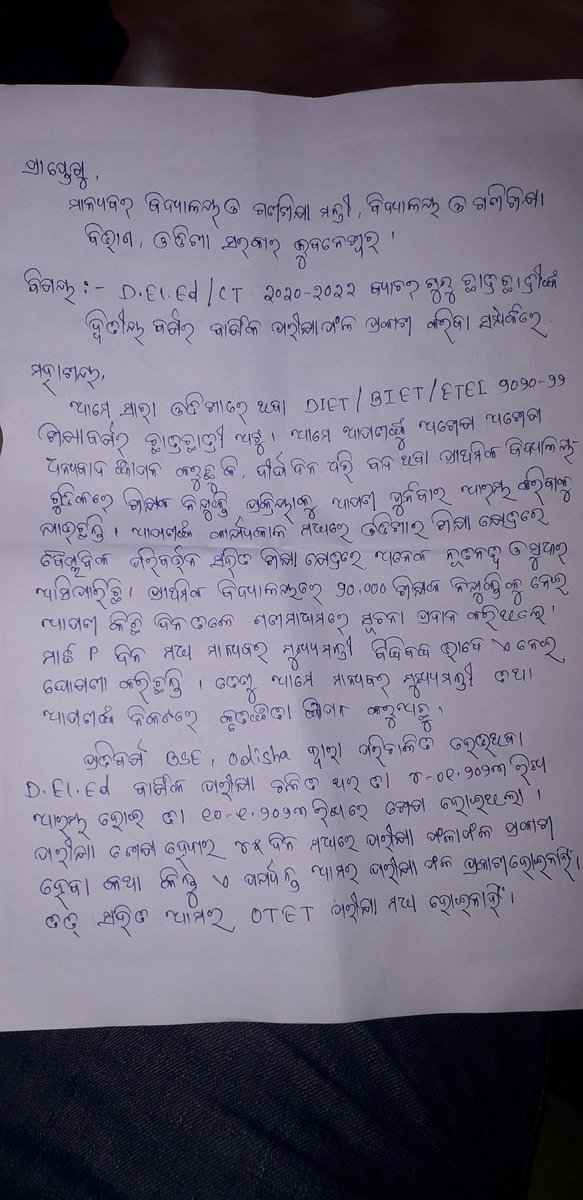 ପ୍ରାପ୍ତେଷୁ,
ମାନ୍ୟବର ବିଦ୍ୟାଳୟ ଓ ଗଣଶିକ୍ଷା ମନ୍ତ୍ରୀ, ବିଦ୍ୟାଳୟ ଓ ଗଣଶିକ୍ଷା
ବିଭାଗ, ଓଡିଶା ସରକାର ଭୁବନେଶ୍ୱର ।
ବିଷୟ :- D.El.Ed/CT ୨୦୨୦-୨୦୨୨ ବ୍ୟାଚର ଗୁରୁ ଛାତ୍ରଛାତ୍ରୀଙ୍କ
ଦ୍ୱିତୀୟ ବର୍ଷର ବାର୍ଷିକ ପରୀକ୍ଷା ଫଳ ପ୍ରକାଶ କରିବା ସମ୍ପର୍କରେ.
ମହାଶୟ,
ଆମେ ସାରା ଓଡିଶାରେ ଥିବା DIET/BIET/ETEI ୨୦୨୦-୨୨
ଶିକ୍ଷାବର୍ଷର ଛାତ୍ରଛାତ୍ରୀ ଅଟୁ । ଆମେ ଆପଣଙ୍କୁ ଅଶେଷ ଅଶେଷ
ଧନ୍ୟବାଦ ଜ୍ଞାପନ କରୁଛୁ କି, ଦୀର୍ଘ ଦିନ ଧରି ବନ୍ଦ ଥିବା ପ୍ରାଥମିକ ବିଦ୍ୟାଳୟ
ଗୁଡିକରେ ଶିକ୍ଷକ ନିଯୁକ୍ତି ପ୍ରକ୍ରିୟାକୁ ଆପଣ ପୁଣିଥରେ ଆରମ୍ଭ କରିବାକୁ
ଯାଉଛନ୍ତି । ଆପଣଙ୍କ କାର୍ଯ୍ୟକାଳ ମଧ୍ୟରେ ଓଡିଶାର ଶିକ୍ଷା କ୍ଷେତ୍ରରେ
ବୈପ୍ଳବିକ ପରିବର୍ତ୍ତନ ସହିତ ଶିକ୍ଷା କ୍ଷେତ୍ରରେ ଅନେକ ନୂତନତ୍ୱ ଓ ସୁଧାର
ଆସିପାରିଛି । ପ୍ରାଥମିକ ବିଦ୍ୟାଳୟରେ ୨୦,୦୦୦ ଶିକ୍ଷକ ନିଯୁକ୍ତିକୁ ନେଇ
ଆପଣ କିଛି ଦିନ ତଳେ ଗଣମାଧ୍ୟମରେ ସୂଚନା ପ୍ରଦାନ କରିଥିଲେ ।
ମାର୍ଚ୍ଚ ୮ ଦିନ ମଧ୍ୟ ମାନ୍ୟବର ମୁଖ୍ୟମନ୍ତ୍ରୀ ବିଧିବଦ୍ଧ ଭାବେ ଏ ନେଇ
ଘୋଷଣା କରିଛନ୍ତି । ତେଣୁ ଆମେ ମାନ୍ୟବର ମୁଖ୍ୟମନ୍ତ୍ରୀ ତଥା
ଆପଣଙ୍କ ନିକଟରେ କୃତଜ୍ଞତା ଜ୍ଞାପନ କରୁଅଛୁ ।
ପ୍ରତିବର୍ଷ BSE, Odisha ଦ୍ୱାରା ପରିଚାଳିତ ହେଉଥିବା
D.El.Ed ବାର୍ଷିକ ପରୀକ୍ଷା ଚଳିତ ଥର ତା ୪-୦୧.୨୦୨୩ ରିଖ
ଆରମ୍ଭ ହୋଇ ତା ୧୦-୧.୨୦୨୩ ରିଖରେ ଶେଷ ହୋଇଥିଲା ।
ପରୀକ୍ଷା ଶେଷ ହେବାର ୪୫ ଦିନ ମଧ୍ୟରେ ପରୀକ୍ଷା ଫଳାଫଳ ପ୍ରକାଶ
ହେବା କଥା କିନ୍ତୁ ଏ ପର୍ଯ୍ୟନ୍ତ ଆମର ପରୀକ୍ଷା ଫଳ ପ୍ରକାଶ ହୋଇନାହିଁ ।
ତତ୍ ସହିତ ଆମର OTET ପରୀକ୍ଷା ମଧ୍ୟ ହୋଇନାହିଁ ।